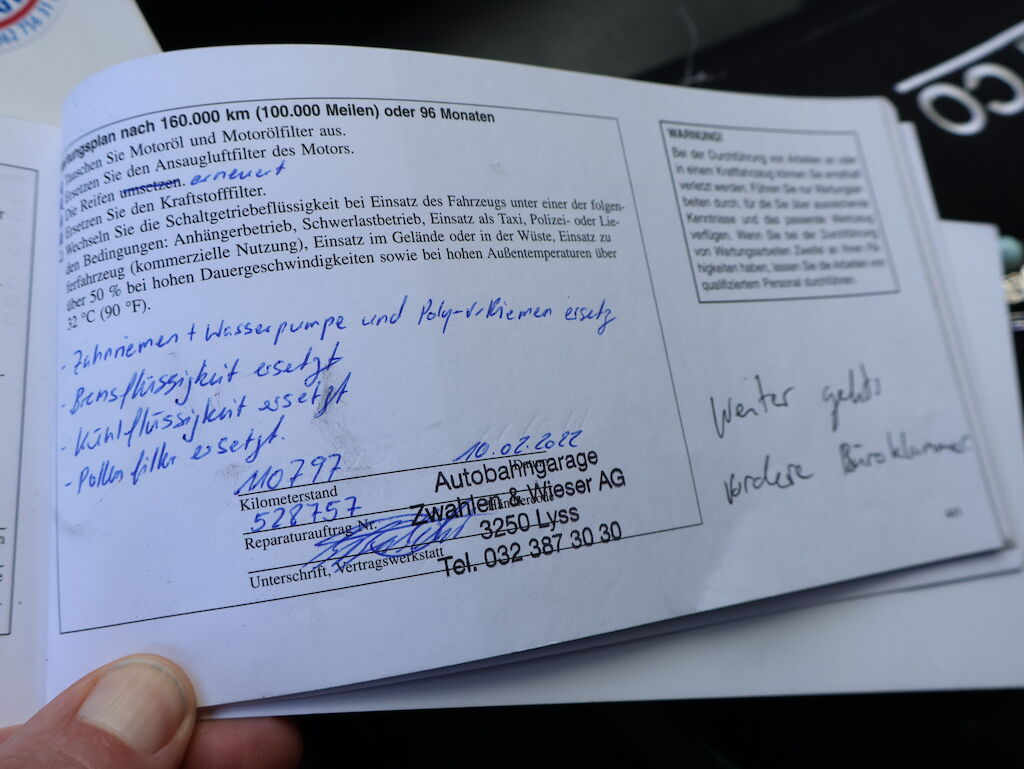 nach 160.000 km (100.000 Meilen) oder 96 Monaten
Sie Motoröl und Motorölfilter aus.
Sie den Ansaugluftfilter des Motors.
Die Reifen umsetzen. erneuert
Ersetzen Sie den Kraftstofffilter.
Wechseln Sie die Schaltgetriebeflüssigkeit bei Einsatz des Fahrzeugs unter einer der folgen-
den Bedingungen: Anhängerbetrieb, Schwerlastbetrieb, Einsatz als Taxi, Polizei- oder Lie-
ferfahrzeug (kommerzielle Nutzung), Einsatz im Gelände oder in der Wüste, Einsatz zu
über 50 % bei hohen Dauergeschwindigkeiten sowie bei hohen Außentemperaturen über
32 °C (90 °F).
- Zahnriemen + Wasserpumpe und Poly-V-Riemen ersetz
- Bremsflüssigkeit ersetzt
- Kühlflüssigkeit ersetzt
- Pollenfilter ersetzt.
110797 10.02.2022
Kilometerstand
528757
Reparaturauftrag Nr.
Unterschrift, Vertragswerkstatt
Autobahngarage
Zwahlen & Wieser AG
3250 Lyss
Tel. 032 387 30 30
WARNUNG!
Bei der Durchführung von Arbeiten an oder
in einem Kraftfahrzeug können Sie ernsthaft
verletzt werden. Führen Sie nur Wartungsar-
beiten durch, für die Sie über ausreichende
Kenntnisse und das passende Werkzeug
verfügen. Wenn Sie bei der Durchführung
von Wartungsarbeiten Zweifel an Ihren Fä-
higkeiten haben, lassen Sie die Arbeiten von
qualifiziertem Personal durchführen.
Weiter gehts
vordere Büroklammer
CO